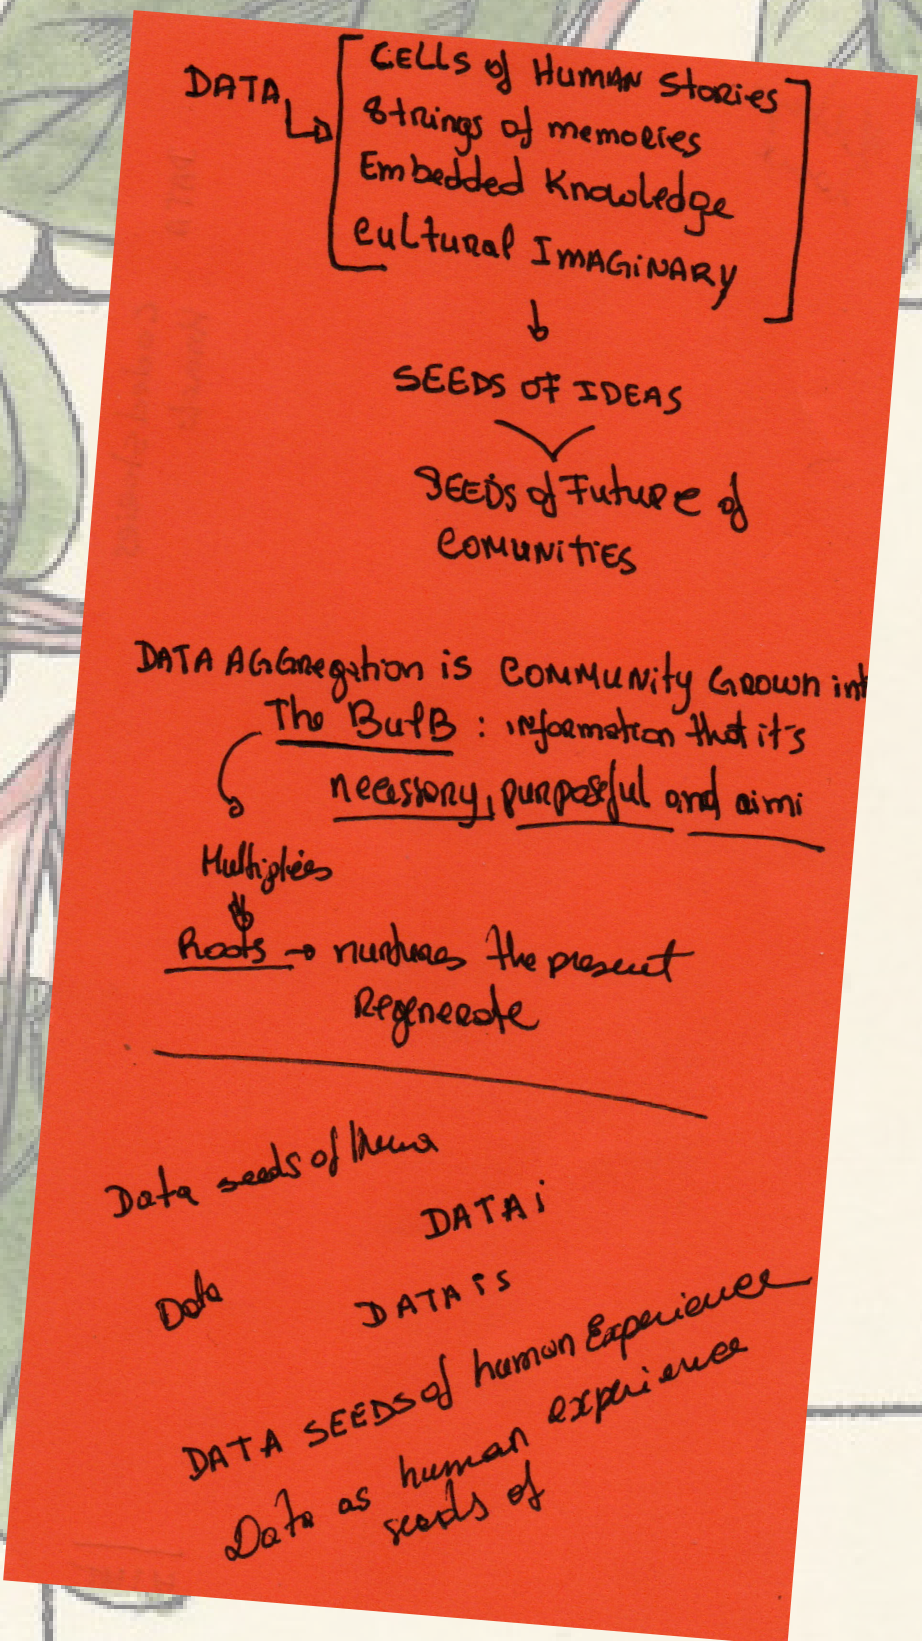 DATA
CELLS of HUMAN Stories
Strings of memories
Embedded Knowledge
Cultural IMAGINARY
SEEDS OF IDEAS
SEEDS of Future of
COMUNITIES
DATA AGGregation is COMMUNity GROWN int
The BulB : information that it's
necessary, purposeful and aimi
Multiplies
Roots → nurtures the present
Regenerate
Data seeds of
DATA i
Data
DATA is
DATA SEEDS of human Experience
Data as human experience
seeds of